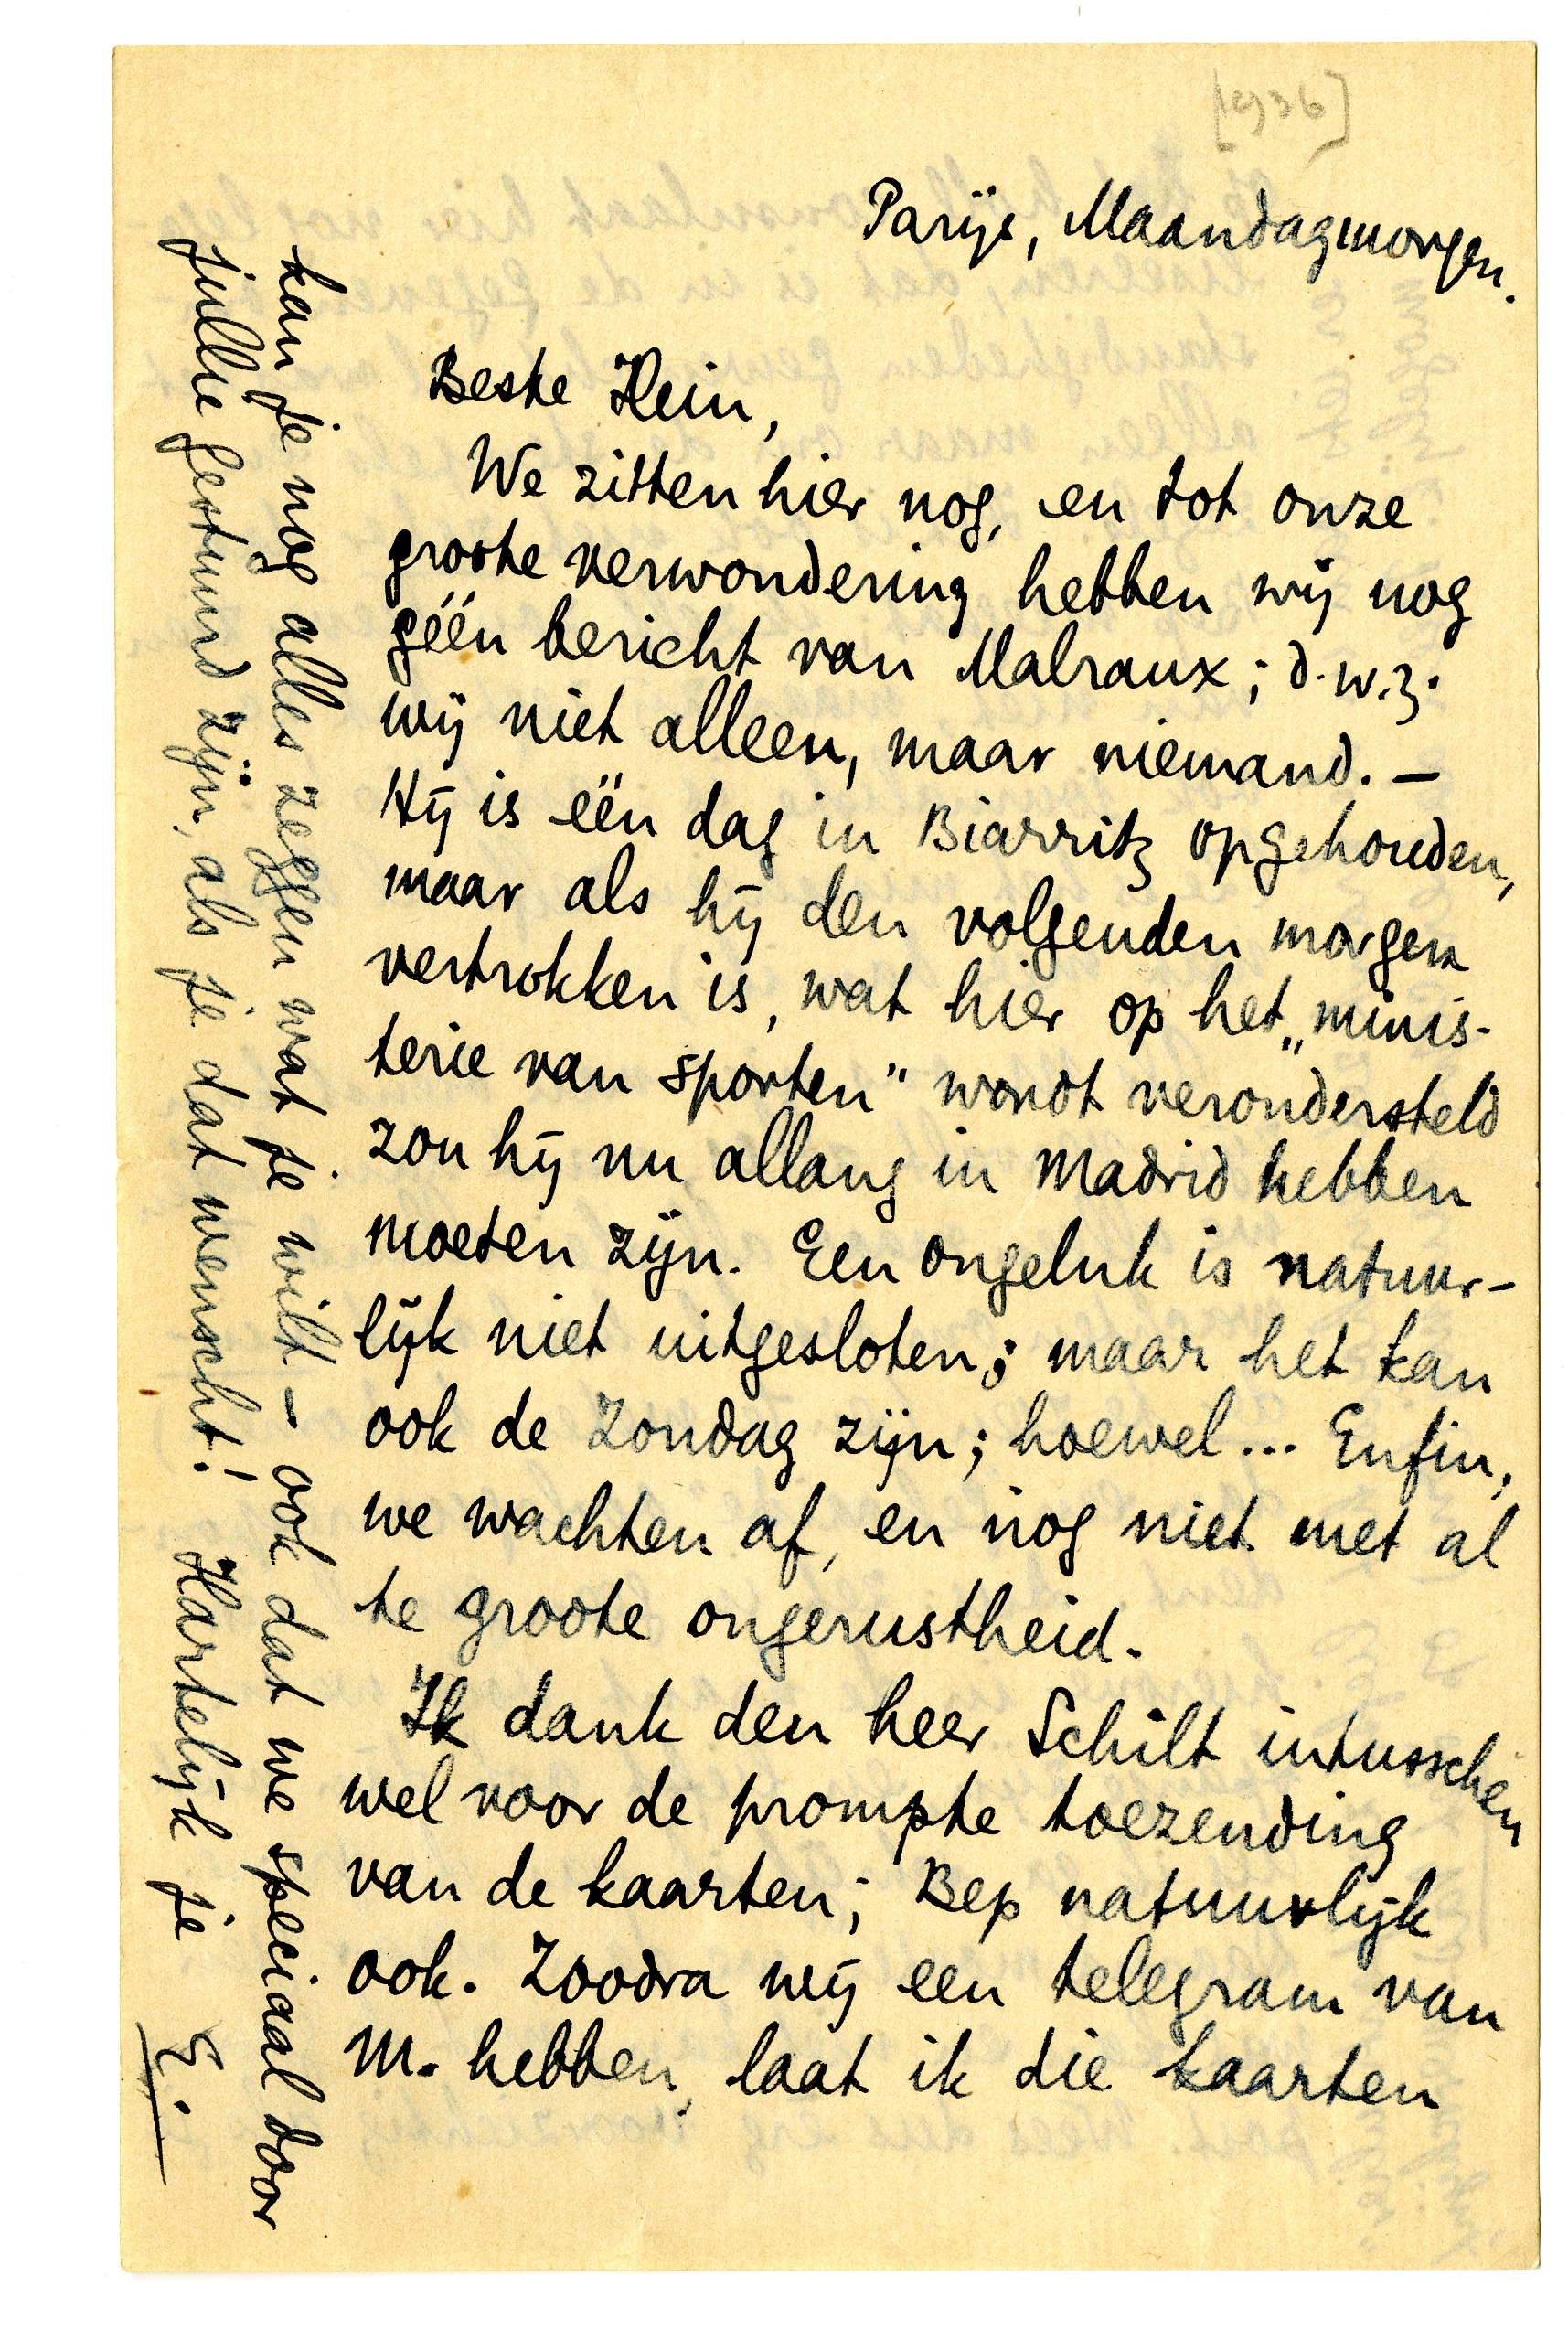 [1936]
Parijs, Maandagmorgen.
Beste Hein,
We zitten hier nog, en tot onze
groote verwondering hebben wij nog
géén bericht van Malraux; d.w.z.
wij niet alleen, maar niemand. –
Hij is één dag in Biarritz opgehouden,
maar als hij den volgenden morgen
vertrokken is, wat hier op het „minis-
terie van sporten" wordt verondersteld
zou hij nu allang in Madrid hebben
moeten zijn. Een ongeluk is natuur-
lijk niet uitgesloten; maar het kan
ook de Zondag zijn; hoewel... Enfin,
we wachten af, en nog niet met al
te groote ongerustheid.
Ik dank den heer Schilt intusschen
wel voor de prompte toezending
van de kaarten; Bep natuurlijk
ook. Zoodra wij een telegram van
M. hebben, laat ik die kaarten
kan je nog alles zeggen wat je wilt – ook dat we speciaal door
jullie gestuurd zijn, als je dat wenscht! Hartelijk je E.